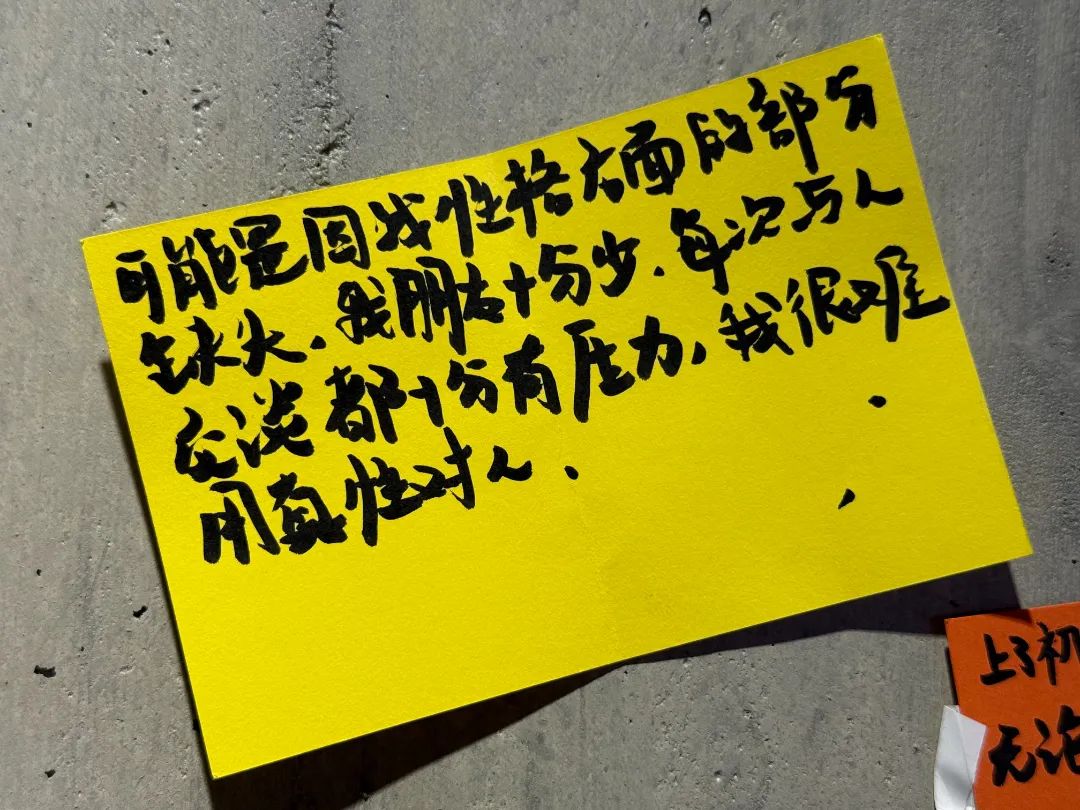 可能是因我性格方面的部分
缺失，我朋友十分少，每次与人
交谈都十分有压力，我很难
用真性对人、
上了初
无论